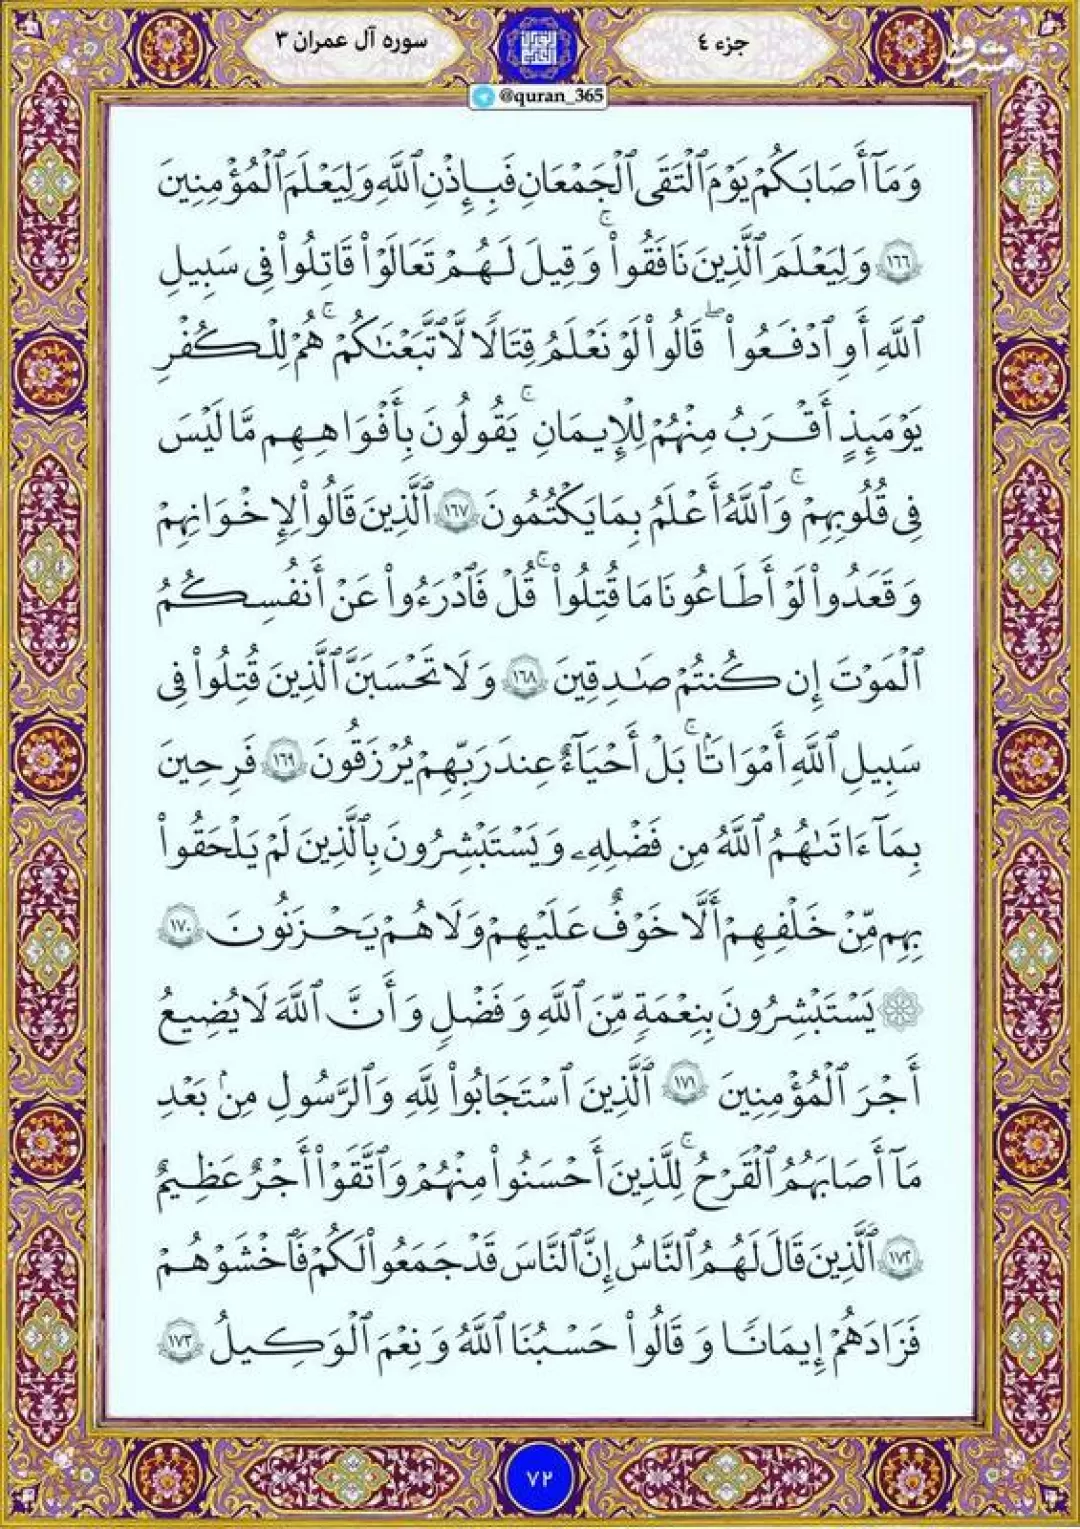 جزء ٤
سوره آل عمران ٣
@quran_365
وَمَآ أَصَـٰبَكُمْ يَوْمَ ٱلْتَقَى ٱلْجَمْعَانِ فَبِإِذْنِ ٱللَّهِ وَلِيَعْلَمَ ٱلْمُؤْمِنِينَ
١٦٦ وَلِيَعْلَمَ ٱلَّذِينَ نَافَقُوا۟ ۚ وَقِيلَ لَهُمْ تَعَالَوْا۟ قَاتِلُوا۟ فِى سَبِيلِ
ٱللَّهِ أَوِ ٱدْفَعُوا۟ ۖ قَالُوا۟ لَوْ نَعْلَمُ قِتَالًا لَّٱتَّبَعْنَـٰكُمْ ۚ هُمْ لِلْكُفْرِ
يَوْمَئِذٍ أَقْرَبُ مِنْهُمْ لِلْإِيمَانِ ۚ يَقُولُونَ بِأَفْوَاهِهِم مَّا لَيْسَ
فِى قُلُوبِهِمْ ۚ وَٱللَّهُ أَعْلَمُ بِمَا يَكْتُمُونَ ١٦٧ ٱلَّذِينَ قَالُوا۟ لِإِخْوَانِهِمْ
وَقَعَدُوا۟ لَوْ أَطَاعُونَا مَا قُتِلُوا۟ ۚ قُلْ فَٱدْرَءُوا۟ عَنْ أَنفُسِكُمُ
ٱلْمَوْتَ إِن كُنتُمْ صَـٰدِقِينَ ١٦٨ وَلَا تَحْسَبَنَّ ٱلَّذِينَ قُتِلُوا۟ فِى
سَبِيلِ ٱللَّهِ أَمْوَاتًۢا ۚ بَلْ أَحْيَآءٌ عِندَ رَبِّهِمْ يُرْزَقُونَ ١٦٩ فَرِحِينَ
بِمَآ ءَاتَىٰهُمُ ٱللَّهُ مِن فَضْلِهِۦ وَيَسْتَبْشِرُونَ بِٱلَّذِينَ لَمْ يَلْحَقُوا۟
بِهِم مِّنْ خَلْفِهِمْ أَلَّا خَوْفٌ عَلَيْهِمْ وَلَا هُمْ يَحْزَنُونَ ١٧٠
۞ يَسْتَبْشِرُونَ بِنِعْمَةٍ مِّنَ ٱللَّهِ وَفَضْلٍ وَأَنَّ ٱللَّهَ لَا يُضِيعُ
أَجْرَ ٱلْمُؤْمِنِينَ ١٧١ ٱلَّذِينَ ٱسْتَجَابُوا۟ لِلَّهِ وَٱلرَّسُولِ مِنۢ بَعْدِ
مَآ أَصَابَهُمُ ٱلْقَرْحُ ۚ لِلَّذِينَ أَحْسَنُوا۟ مِنْهُمْ وَٱتَّقَوْا۟ أَجْرٌ عَظِيمٌ
١٧٢ ٱلَّذِينَ قَالَ لَهُمُ ٱلنَّاسُ إِنَّ ٱلنَّاسَ قَدْ جَمَعُوا۟ لَكُمْ فَٱخْشَوْهُمْ
فَزَادَهُمْ إِيمَانًا وَقَالُوا۟ حَسْبُنَا ٱللَّهُ وَنِعْمَ ٱلْوَكِيلُ ١٧٣
٧٢